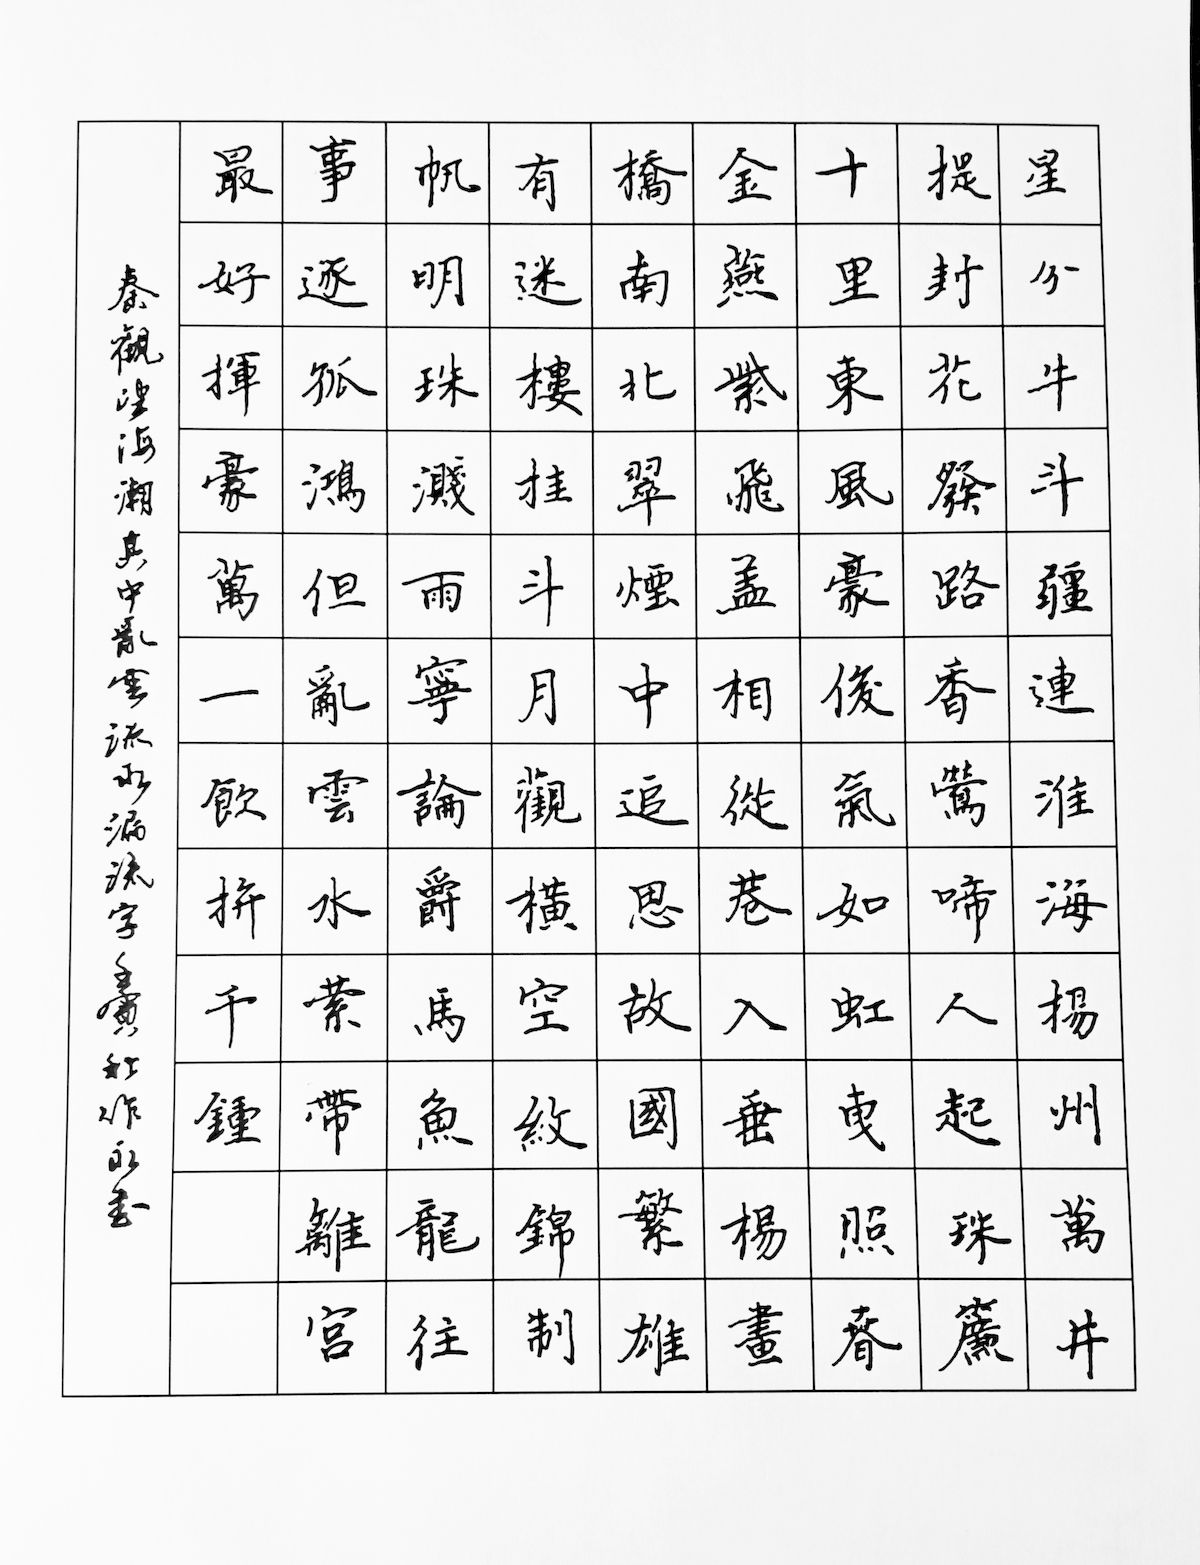 星分牛斗疆連淮海揚州萬井
提封花發路香鶯啼人起珠簾
十里東風豪俊氣如虹曳照春
金燕紫飛蓋相從巷入垂楊畫
橋南北翠煙中追思故國繁雄
有迷樓挂斗月觀橫空紋錦制
帆明珠濺雨寧論爵馬魚龍往
事逐孤鴻但亂雲水縈帶離宮
最好揮豪萬一飲拚千鍾
秦觀望海潮其中亂雲流水漏流字壬寅秋作永書